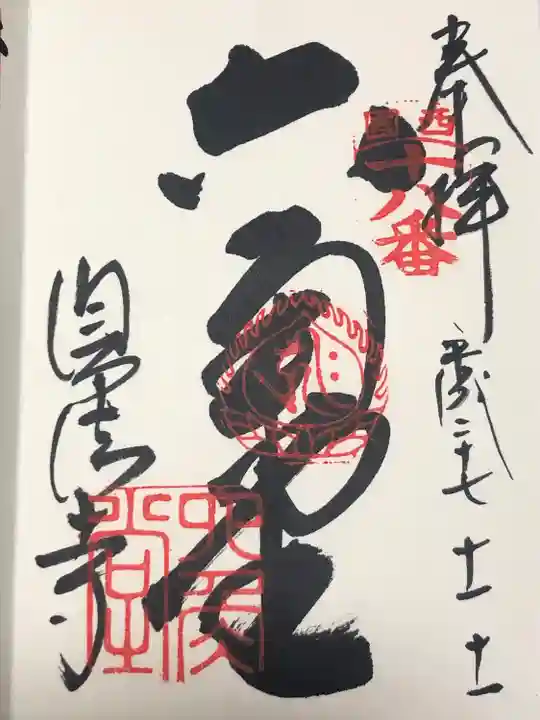 奉拝
西國
十八番
平成二十七 十一 十一
六角堂
頂法寺
六角堂